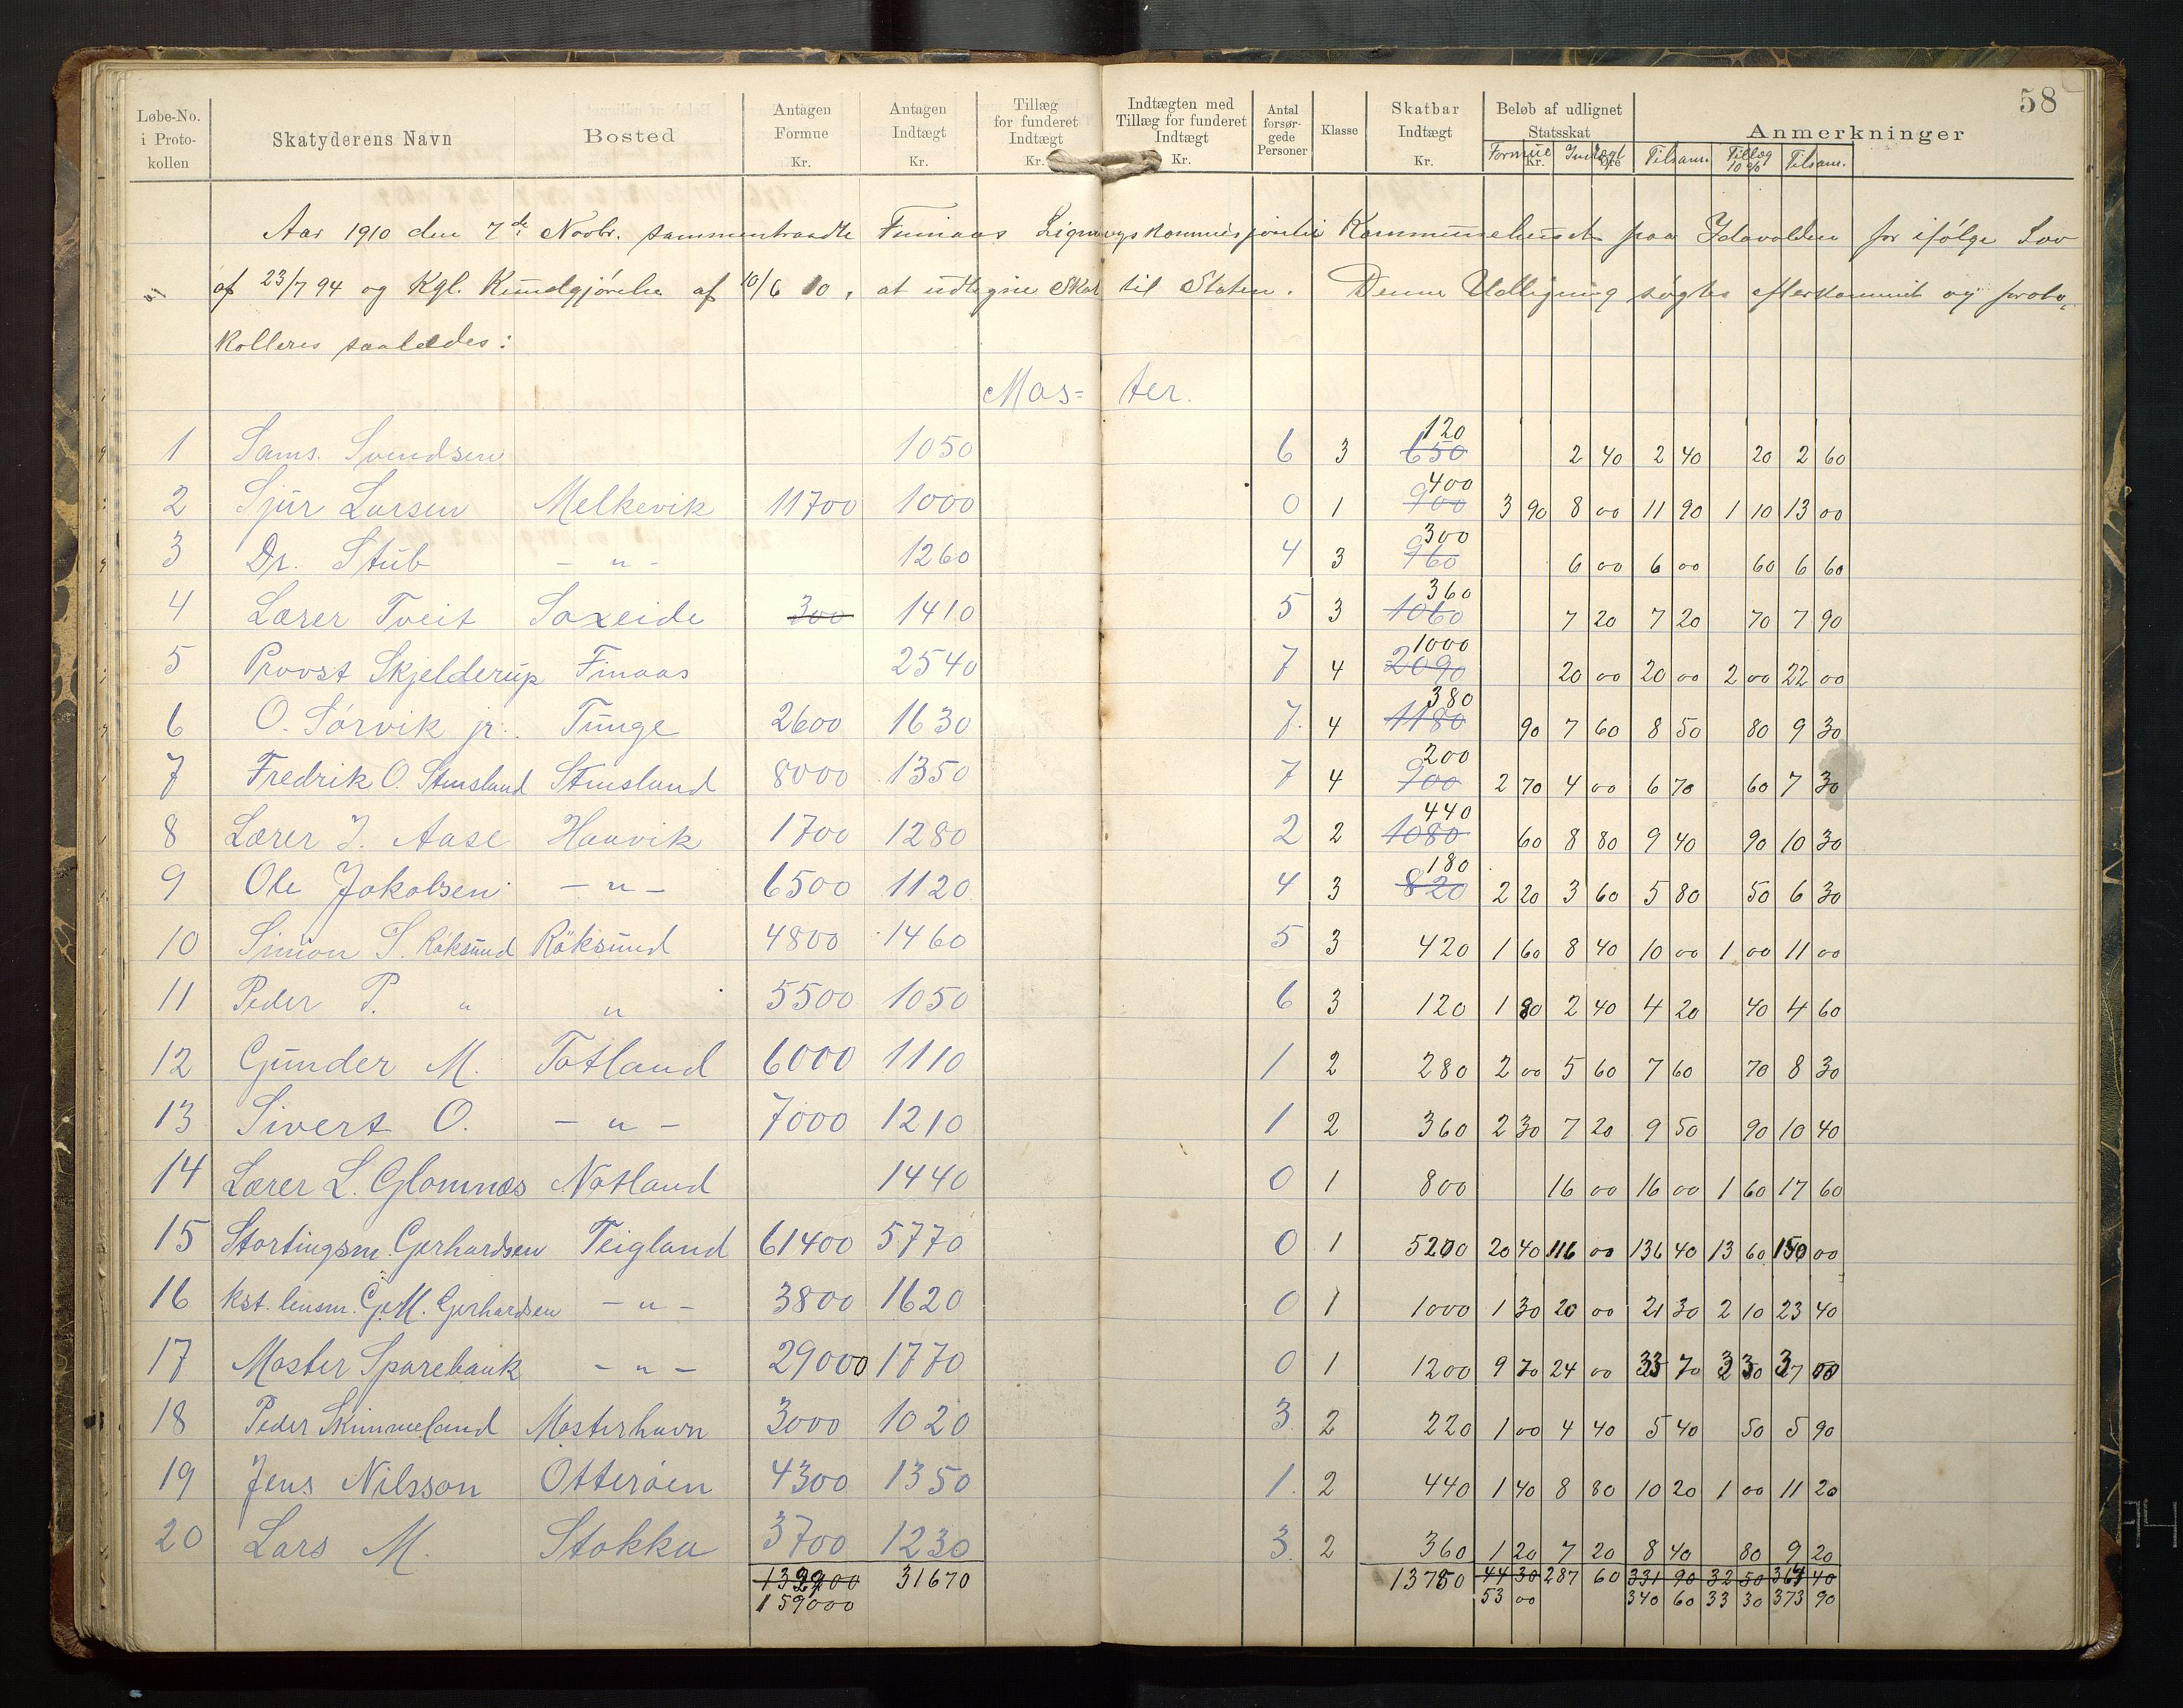 58
Løbe-No. i Protokollen | Skatyderens Navn | Bosted | Antagen Formue Kr. | Antagen Indtægt Kr. | Tillæg for funderet Indtægt Kr. | Indtægten med Tillæg for funderet Indtægt Kr. | Antal forsørgede Personer | Klasse | Skatbar Indtægt Kr. | Beløb af udlignet Statsskat Kr. Øre | Anmerkninger
Formue | Indtægt | Tilsam. | Tillæg 10% | Tilsam.
Aar 1910 den 7de Novbr. sammentraadte Finaas Ligningskommission i Kommunehuset paa Idavolden for ifølge Lov
af 23/7 94 og Kgl. Kundgjørelse af 10/6 10, at udligne Skat til Staten. Denne Udligning søgtes efterkommet og proto-
kolleres saaledes:
Mos= ter.
1 Sams. Svendsen 1050 6 3 650 120 2 40 2 40 20 2 60
2 Sjur Larsen Melkevik 11700 1000 0 1 900 400 3 90 8 00 11 90 1 10 13 00
3 Dr. Stub - " - 1260 4 3 960 300 6 00 6 00 60 6 60
4 Lærer Tveit Saxeide 300 1410 5 3 1060 360 7 20 7 20 70 7 90
5 Provst Skjelderup Finaas 2540 7 4 2090 1000 20 00 20 00 2 00 22 00
6 O. Sørvik jr. Tunge 2600 1630 7 4 1180 380 90 7 60 8 50 80 9 30
7 Fredrik O. Stensland Stensland 8000 1350 7 4 900 200 2 70 4 00 6 70 60 7 30
8 Lærer J. Aase Haavik 1700 1280 2 2 1080 440 60 8 80 9 40 90 10 30
9 Ole Jakobsen - " - 6500 1120 4 3 820 180 2 20 3 60 5 80 50 6 30
10 Simon S. Röksund Röksund 4800 1460 5 3 420 1 60 8 40 10 00 1 00 11 00
11 Peder P. " " 5500 1050 6 3 120 1 80 2 40 4 20 40 4 60
12 Gunder M. Totland 6000 1110 1 2 280 2 00 5 60 7 60 70 8 30
13 Sivert O. - " - 7000 1210 1 2 360 2 30 7 20 9 50 90 10 40
14 Lærer L. Glomnes Notland 1440 0 1 800 16 00 16 00 1 60 17 60
15 Stortingsm. Gerhardsen Teigland 61400 5770 0 1 5200 20 40 116 00 136 40 13 60 150 00
16 kst. lensm. G. M. Gerhardsen - " - 3800 1620 0 1 1000 1 30 20 00 21 30 2 10 23 40
17 Moster Sparebank - " - 29000 1770 0 1 1200 9 70 24 00 33 70 3 30 37 00
18 Peder Skimmeland Mosterhavn 3000 1020 3 2 220 1 00 4 40 5 40 50 5 90
19 Jens Nilsson Otterøen 4300 1350 1 2 440 1 40 8 80 10 20 1 00 11 20
20 Lars M. Stokka 3700 1230 3 2 360 1 20 7 20 8 40 80 9 20
31670 13780 44 30 287 60 331 90 32 50 364 40
159000 53 00 340 60 33 30 373 90